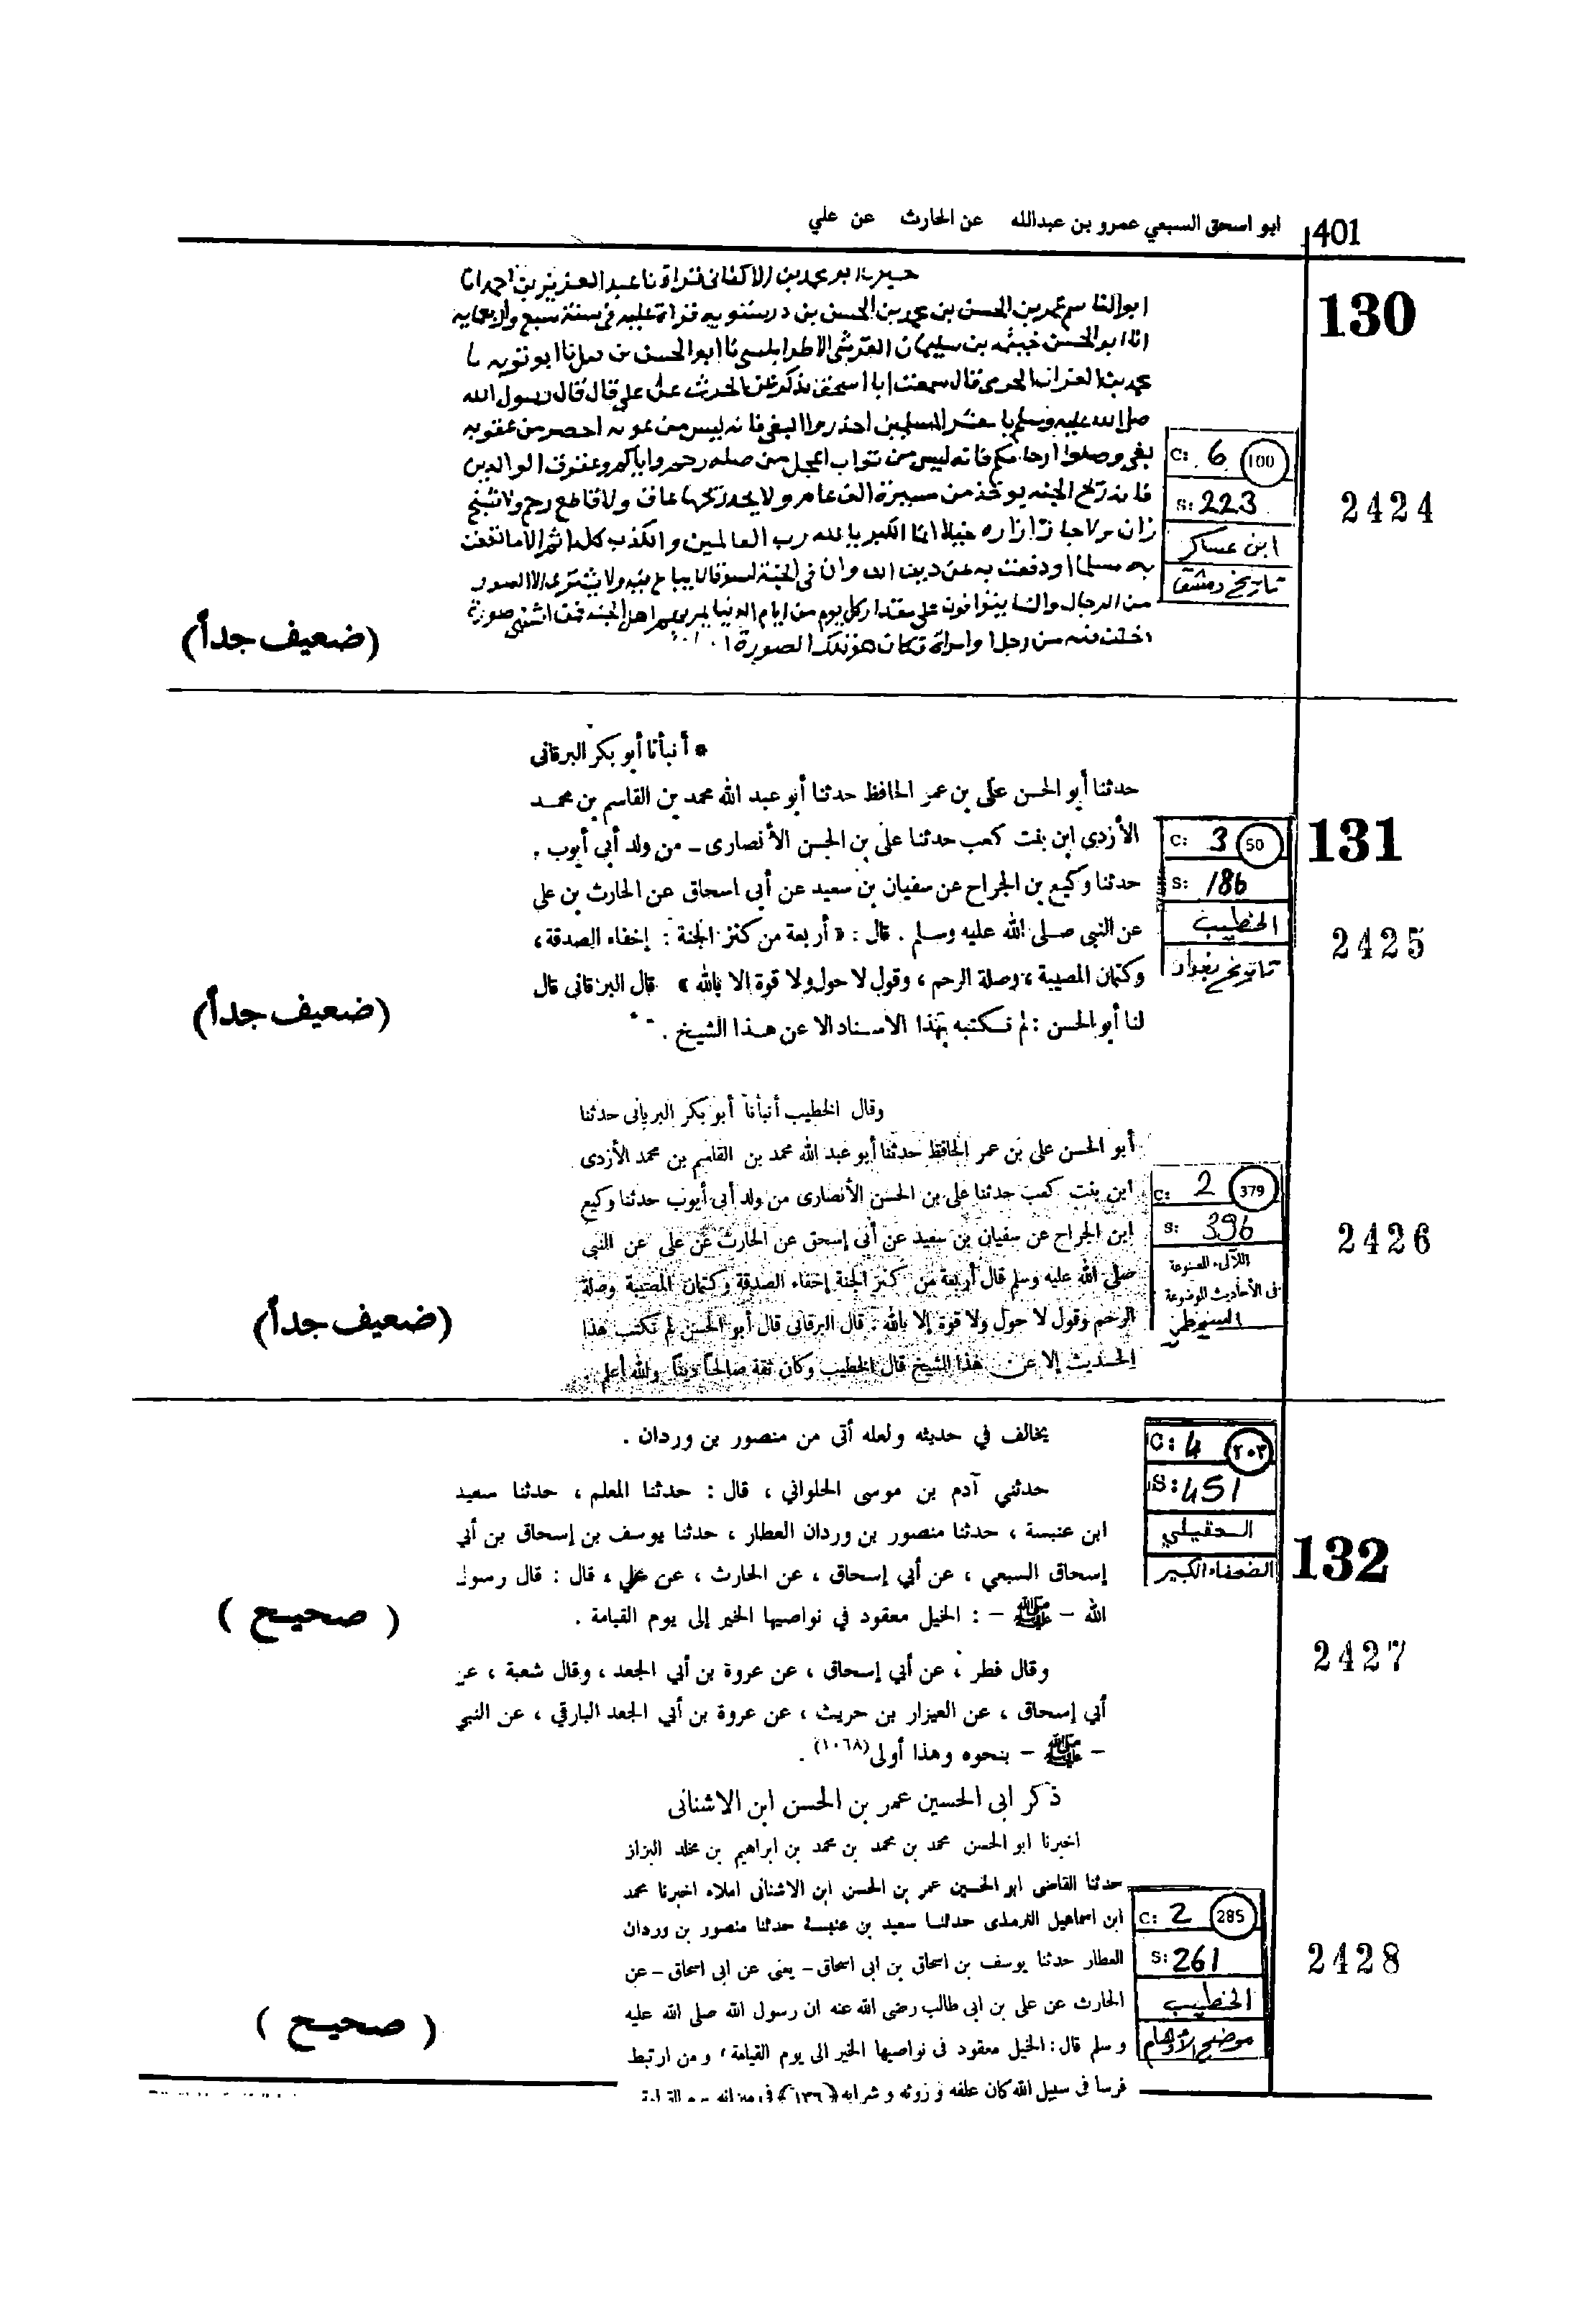 401
ابو اسحق السبعي عمرو بن عبدالله عن الحارث عن علي
130
عبد العزيز بن احمد انا
ابو القاسم بن الحسن بن محمد بن الحسن بن درستويه قراة عليه في سنة سبع
انا ابو الحسن خيثمه بن سليمان القرشي الاطرابلسي نا ابو الحسن بن نا ابو توبه نا
محمد بن الجرمي قال سمعت ابا اسحق يذكر عن الحرث عن علي قال قال رسول الله
صلى الله عليه وسلم يا معشر المسلمين احذروا البغي فانه ليس من عقوبه
بغي وصلوا ارحامكم فانه ليس من ثواب اعجل من صله رحم واياكم وعقوق الوالدين
الجنه يوخذ من مسيرة الف عام ولا يجد ريحها عاق ولا قاطع رحم ولا شيخ
زان ولا جار ازاره خيلا انما الكبريا لله رب العالمين والكذب كله اثم الا ما نفعت
به مسلما او دفعت به عن دين الله وان في الجنة لسوقا لا يباع فيه ولا يشترى الا الصور
من الرجال والنسا يتوافون على مقدار كل يوم من ايام الدنيا يمر بهم اهل الجنه فمن اشتهى صورة
دخلت فيه من رجل او امراة فكان هو تلك الصورة
C: 6 (100)
S: 223
ابن عساكر
تاريخ دمشق
2424
(ضعيف جداً)
* أنبأنا أبو بكر البرقانى
حدثنا أبو الحسن على بن عمر الحافظ حدثنا أبو عبد الله محمد بن القاسم بن محمد
الأزدى ابن بنت كعب حدثنا على بن الحسن الأنصارى - من ولد أبى أيوب .
حدثنا وكيع بن الجراح عن سفيان بن سعيد عن أبى اسحاق عن الحارث بن على
عن النبى صلى الله عليه وسلم . قال : « أربعة من كنز الجنة : إخفاء الصدقة ،
وكتمان المصيبة ، وصلة الرحم ، وقول لا حول ولا قوة الا بالله » قال البرقانى قال
لنا أبو الحسن : لم نكتبه بهذا الاسناد الا عن هذا الشيخ .
131
C: 3 (50)
S: 186
الخطيب
تاريخ بغداد
2425
(ضعيف جداً)
وقال الخطيب أنبأنا أبو بكر البرقانى حدثنا
أبو الحسن على بن عمر الحافظ حدثنا أبو عبد الله محمد بن القاسم بن محمد الأزدى
ابن بنت كعب حدثنا على بن الحسن الأنصارى من ولد أبى أيوب حدثنا وكيع
ابن الجراح عن سفيان بن سعيد عن أبى إسحق عن الحارث عن على عن النبى
صلى الله عليه وسلم قال أربعة من كنز الجنة إخفاء الصدقة وكتمان المصيبة وصلة
الرحم وقول لا حول ولا قوة إلا بالله . قال البرقانى قال أبو الحسن لم نكتب هذا
الحديث إلا عن هذا الشيخ قال الخطيب وكان ثقة صالحاً ديناً والله أعلم .
C: 2 (379)
S: 396
اللآلىء المصنوعة
فى الأحاديث الموضوعة
السيوطي
2426
(ضعيف جداً)
يخالف في حديثه ولعله أتى من منصور بن وردان .
حدثني آدم بن موسى الحلواني ، قال : حدثنا المعلم ، حدثنا سعيد
ابن عنبسة ، حدثنا منصور بن وردان العطار ، حدثنا يوسف بن إسحاق بن أبي
إسحاق السبعي ، عن أبي إسحاق ، عن الحارث ، عن علي ، قال : قال رسول
الله - ﷺ - : الخيل معقود في نواصيها الخير إلى يوم القيامة .
وقال فطر ، عن أبي إسحاق ، عن عروة بن أبي الجعد ، وقال شعبة ، عن
أبي إسحاق ، عن العيزار بن حريث ، عن عروة بن أبي الجعد البارقي ، عن النبي
- ﷺ - بنحوه وهذا أولى (١٠٦٨) .
C: 4 (٢٠٣)
S: 451
العقيلي
الضعفاء الكبير
132
2427
( صحيح )
ذكر ابى الحسين عمر بن الحسن ابن الاشنانى
اخبرنا ابو الحسن محمد بن محمد بن محمد بن ابراهيم بن مخلد البزاز
حدثنا القاضى ابو الحسين عمر بن الحسن ابن الاشنانى املاء اخبرنا محمد
ابن اسماعيل الترمذى حدثنا سعيد بن عنبسة حدثنا منصور بن وردان
العطار حدثنا يوسف بن اسحاق بن ابى اسحاق - يعنى عن ابى اسحاق - عن
الحارث عن على بن ابى طالب رضى الله عنه ان رسول الله صلى الله عليه
وسلم قال : الخيل معقود فى نواصيها الخير الى يوم القيامة ، ومن ارتبط
فرسا فى سبيل الله كان علفه وروثه وشرابه (١٣٦) فى ميزانه يوم القيامة
C: 2 (285)
S: 261
الخطيب
موضح الأوهام
2428
( صحيح )